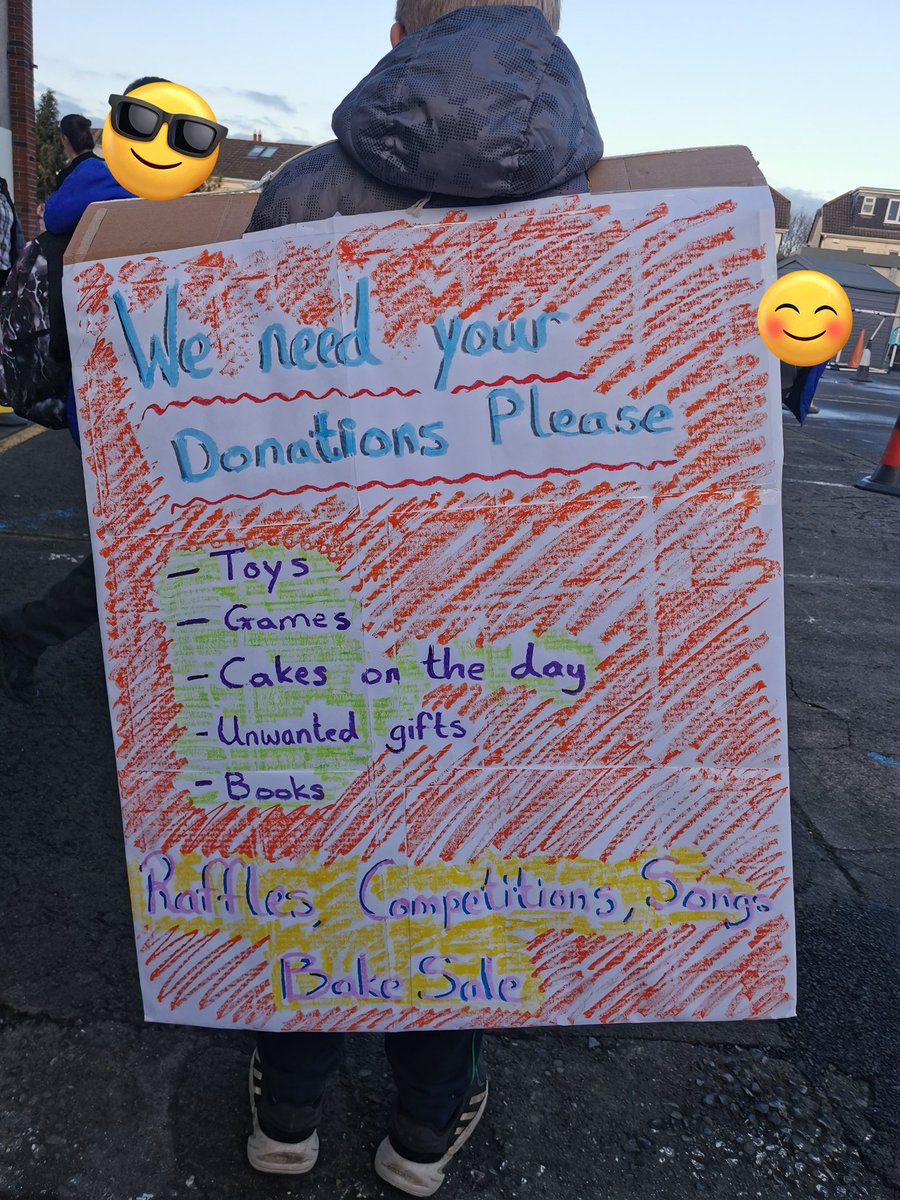 We need your
Donations Please
- Toys
- Games
- Cakes on the day
- Unwanted gifts
- Books
Raffles, Competitions, Songs
Bake Sale